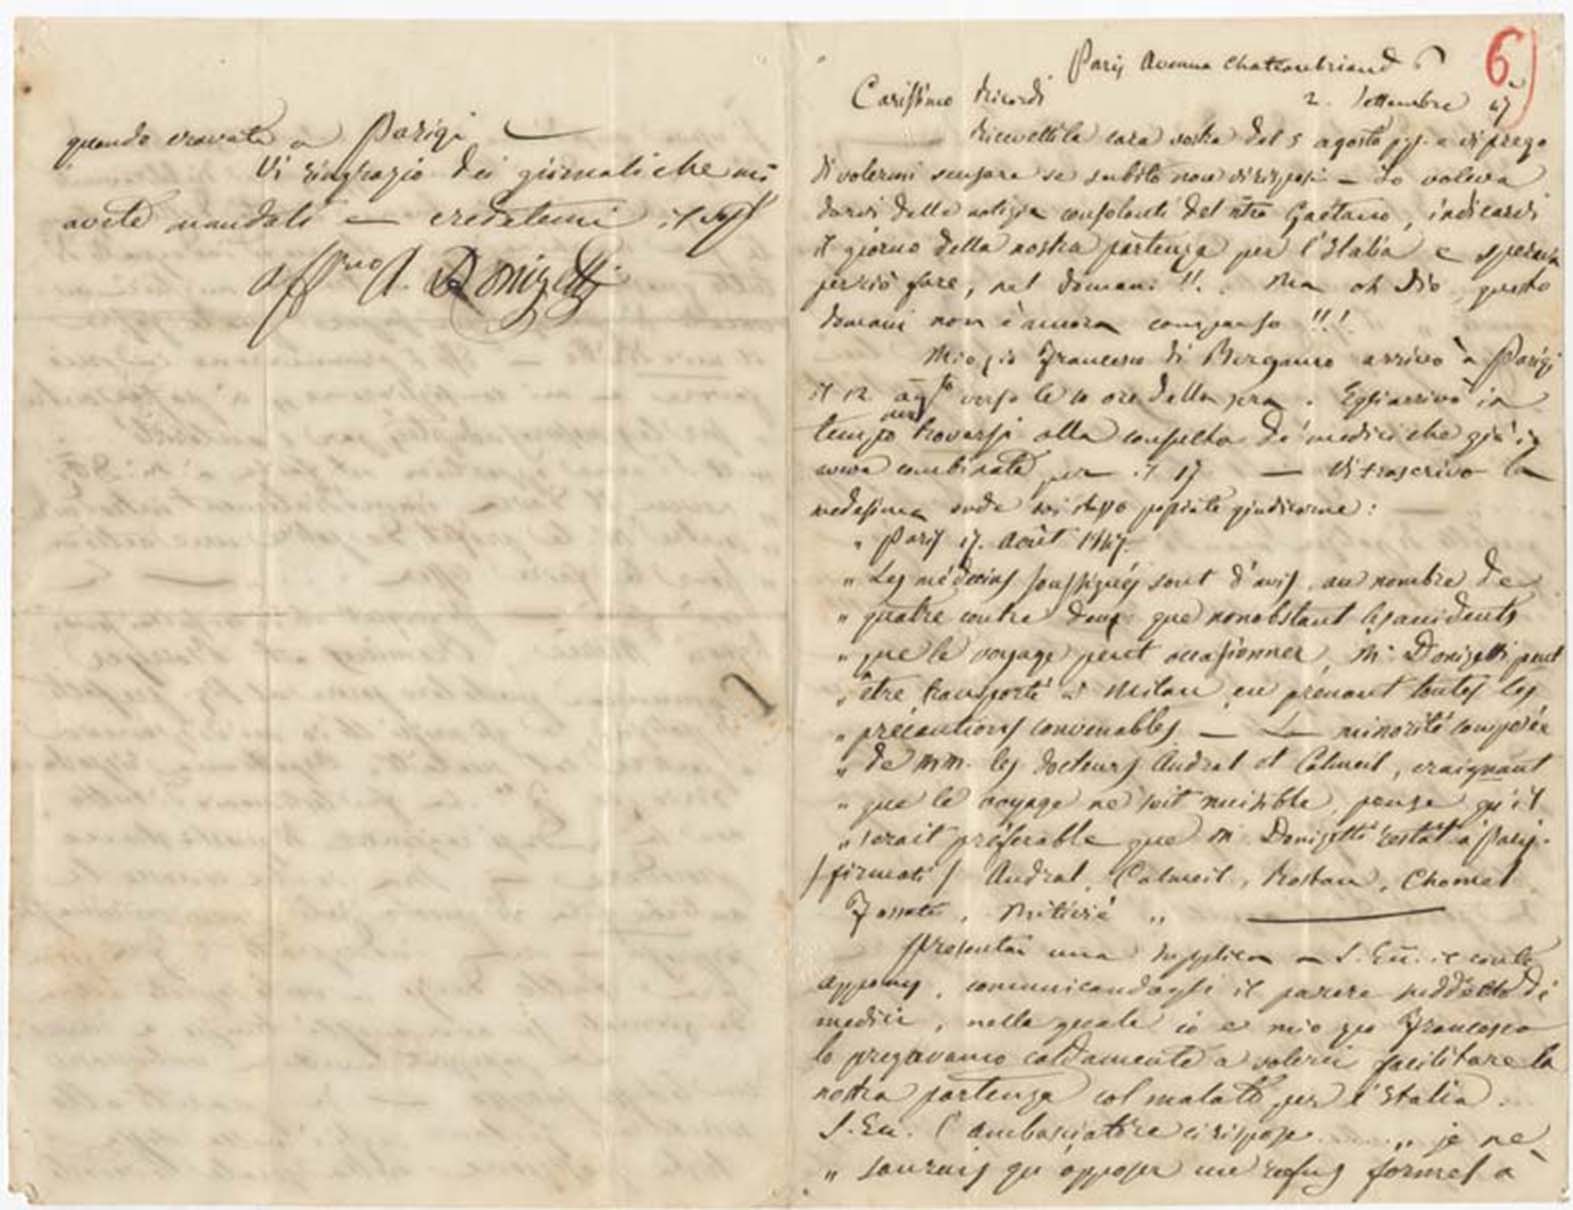 quando eravate a Parigi
Vi ringrazio dei giornali che mi
avete mandati — credetemi il
affmo A. Donizetti
6
Paris Avenue Chateaubriand 6
Carissimo Ricordi
2. Settembre 47
Ricevetti la cara vostra del 5 agosto pp. e vi prego
di volermi scusare se subito non vi risposi — Io voleva
darvi delle notizie consolanti del ntro Gaetano, indicarvi
il giorno della nostra partenza per l'Italia e sperava
perciò fare, nel domani !!. Ma oh Dio, questo
domani non è ancora comparso !!!
Mio zio Francesco di Bergamo arrivò a Parigi
il 12 agto verso le 10 ore della sera. Egli arrivò in
tempo per trovarsi alla consulta de' medici che già si
aveva combinata per il 17 — Vi trascrivo la
medesima onde voi stesso possiate giudicarne:
" Paris 17. Août 1847.
" Les médecins soussignés sont d'avis, au nombre de
" quatre contre deux que nonobstant les accidents
" que le voyage peut occasionner, Mr Donizetti peut
" être transporté à Milan en prenant toutes les
" précautions convenables — La minorité composée
" de MM. les docteurs Andral et Calmeil, craignant
" que le voyage ne soit nuisible, pense qu'il
" serait préférable que M Donizetti restat à Paris.
/firmati/ Andral, Calmeil, Rostan, Chomel
Fossati, Mitivié "
Presentai una supplica a S. Ecc. il conte
Appony, comunicandogli il parere suddetto dei
medici, nella quale io e mio zio Francesco
lo pregavamo caldamente a volerci facilitare la
nostra partenza col malato per l'Italia.
S. Ecc. l'ambasciatore ci rispose ..... " je ne
" saurais qu'opposer un refus formel à